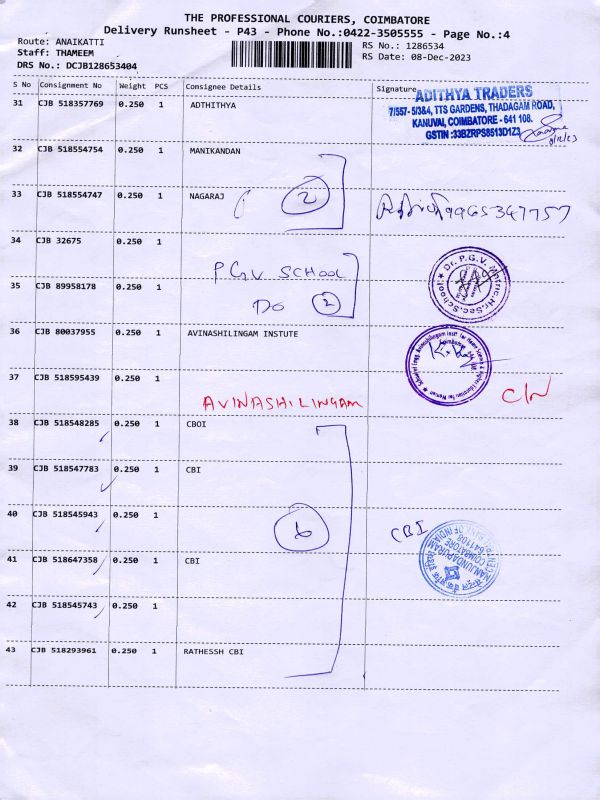 THE PROFESSIONAL COURIERS, COIMBATORE
Delivery Runsheet - P43 - Phone No.:0422-3505555 - Page No.:4
Route: ANAIKATTI
Staff: THAMEEM
DRS No.: DCJB128653404
RS No.: 1286534
RS Date: 08-Dec-2023
S No Consignment No Weight PCS Consignee Details Signature
31 CJB 518357769 0.250 1 ADTHITHYA
ADITHYA TRADERS
7/557- 5/3&4, TTS GARDENS, THADAGAM ROAD,
KANUVAI, COIMBATORE - 641 108.
GSTIN :33BZRPS8513D1Z3
8/12/23
32 CJB 518554754 0.250 1 MANIKANDAN
33 CJB 518554747 0.250 1 NAGARAJ
2
9965347757
34 CJB 32675 0.250 1
P.G.V SCHOOL
Dr. P.G.V. Matric.Hr.Sec.School
35 CJB 89958178 0.250 1
DO 2
36 CJB 80037955 0.250 1 AVINASHILINGAM INSTUTE
37 CJB 518595439 0.250 1
AVINASHILINGAM
38 CJB 518548285 0.250 1 CBOI
39 CJB 518547783 0.250 1 CBI
40 CJB 518545943 0.250 1
6
CBI
NANJUNDAPURAM
COIMBATORE
641108
41 CJB 518647358 0.250 1 CBI
42 CJB 518545743 0.250 1
43 CJB 518293961 0.250 1 RATHESSH CBI